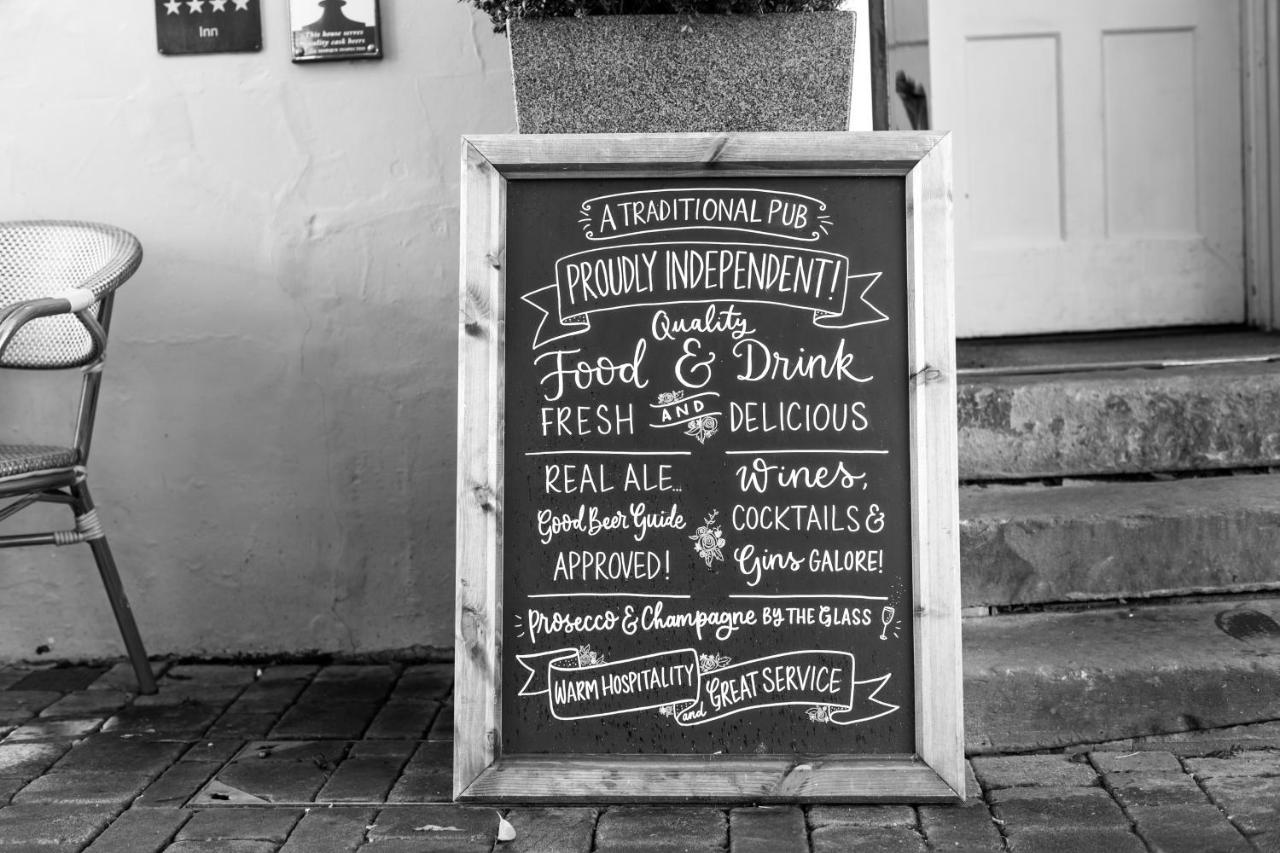 ★★★★
Inn
This house serves
quality cask beers
A TRADITIONAL PUB
PROUDLY INDEPENDENT!
Quality
Food & Drink
FRESH AND DELICIOUS
REAL ALE...
Good Beer Guide
APPROVED!
Wines,
COCKTAILS &
Gins GALORE!
Prosecco & Champagne BY THE GLASS
WARM HOSPITALITY
and GREAT SERVICE